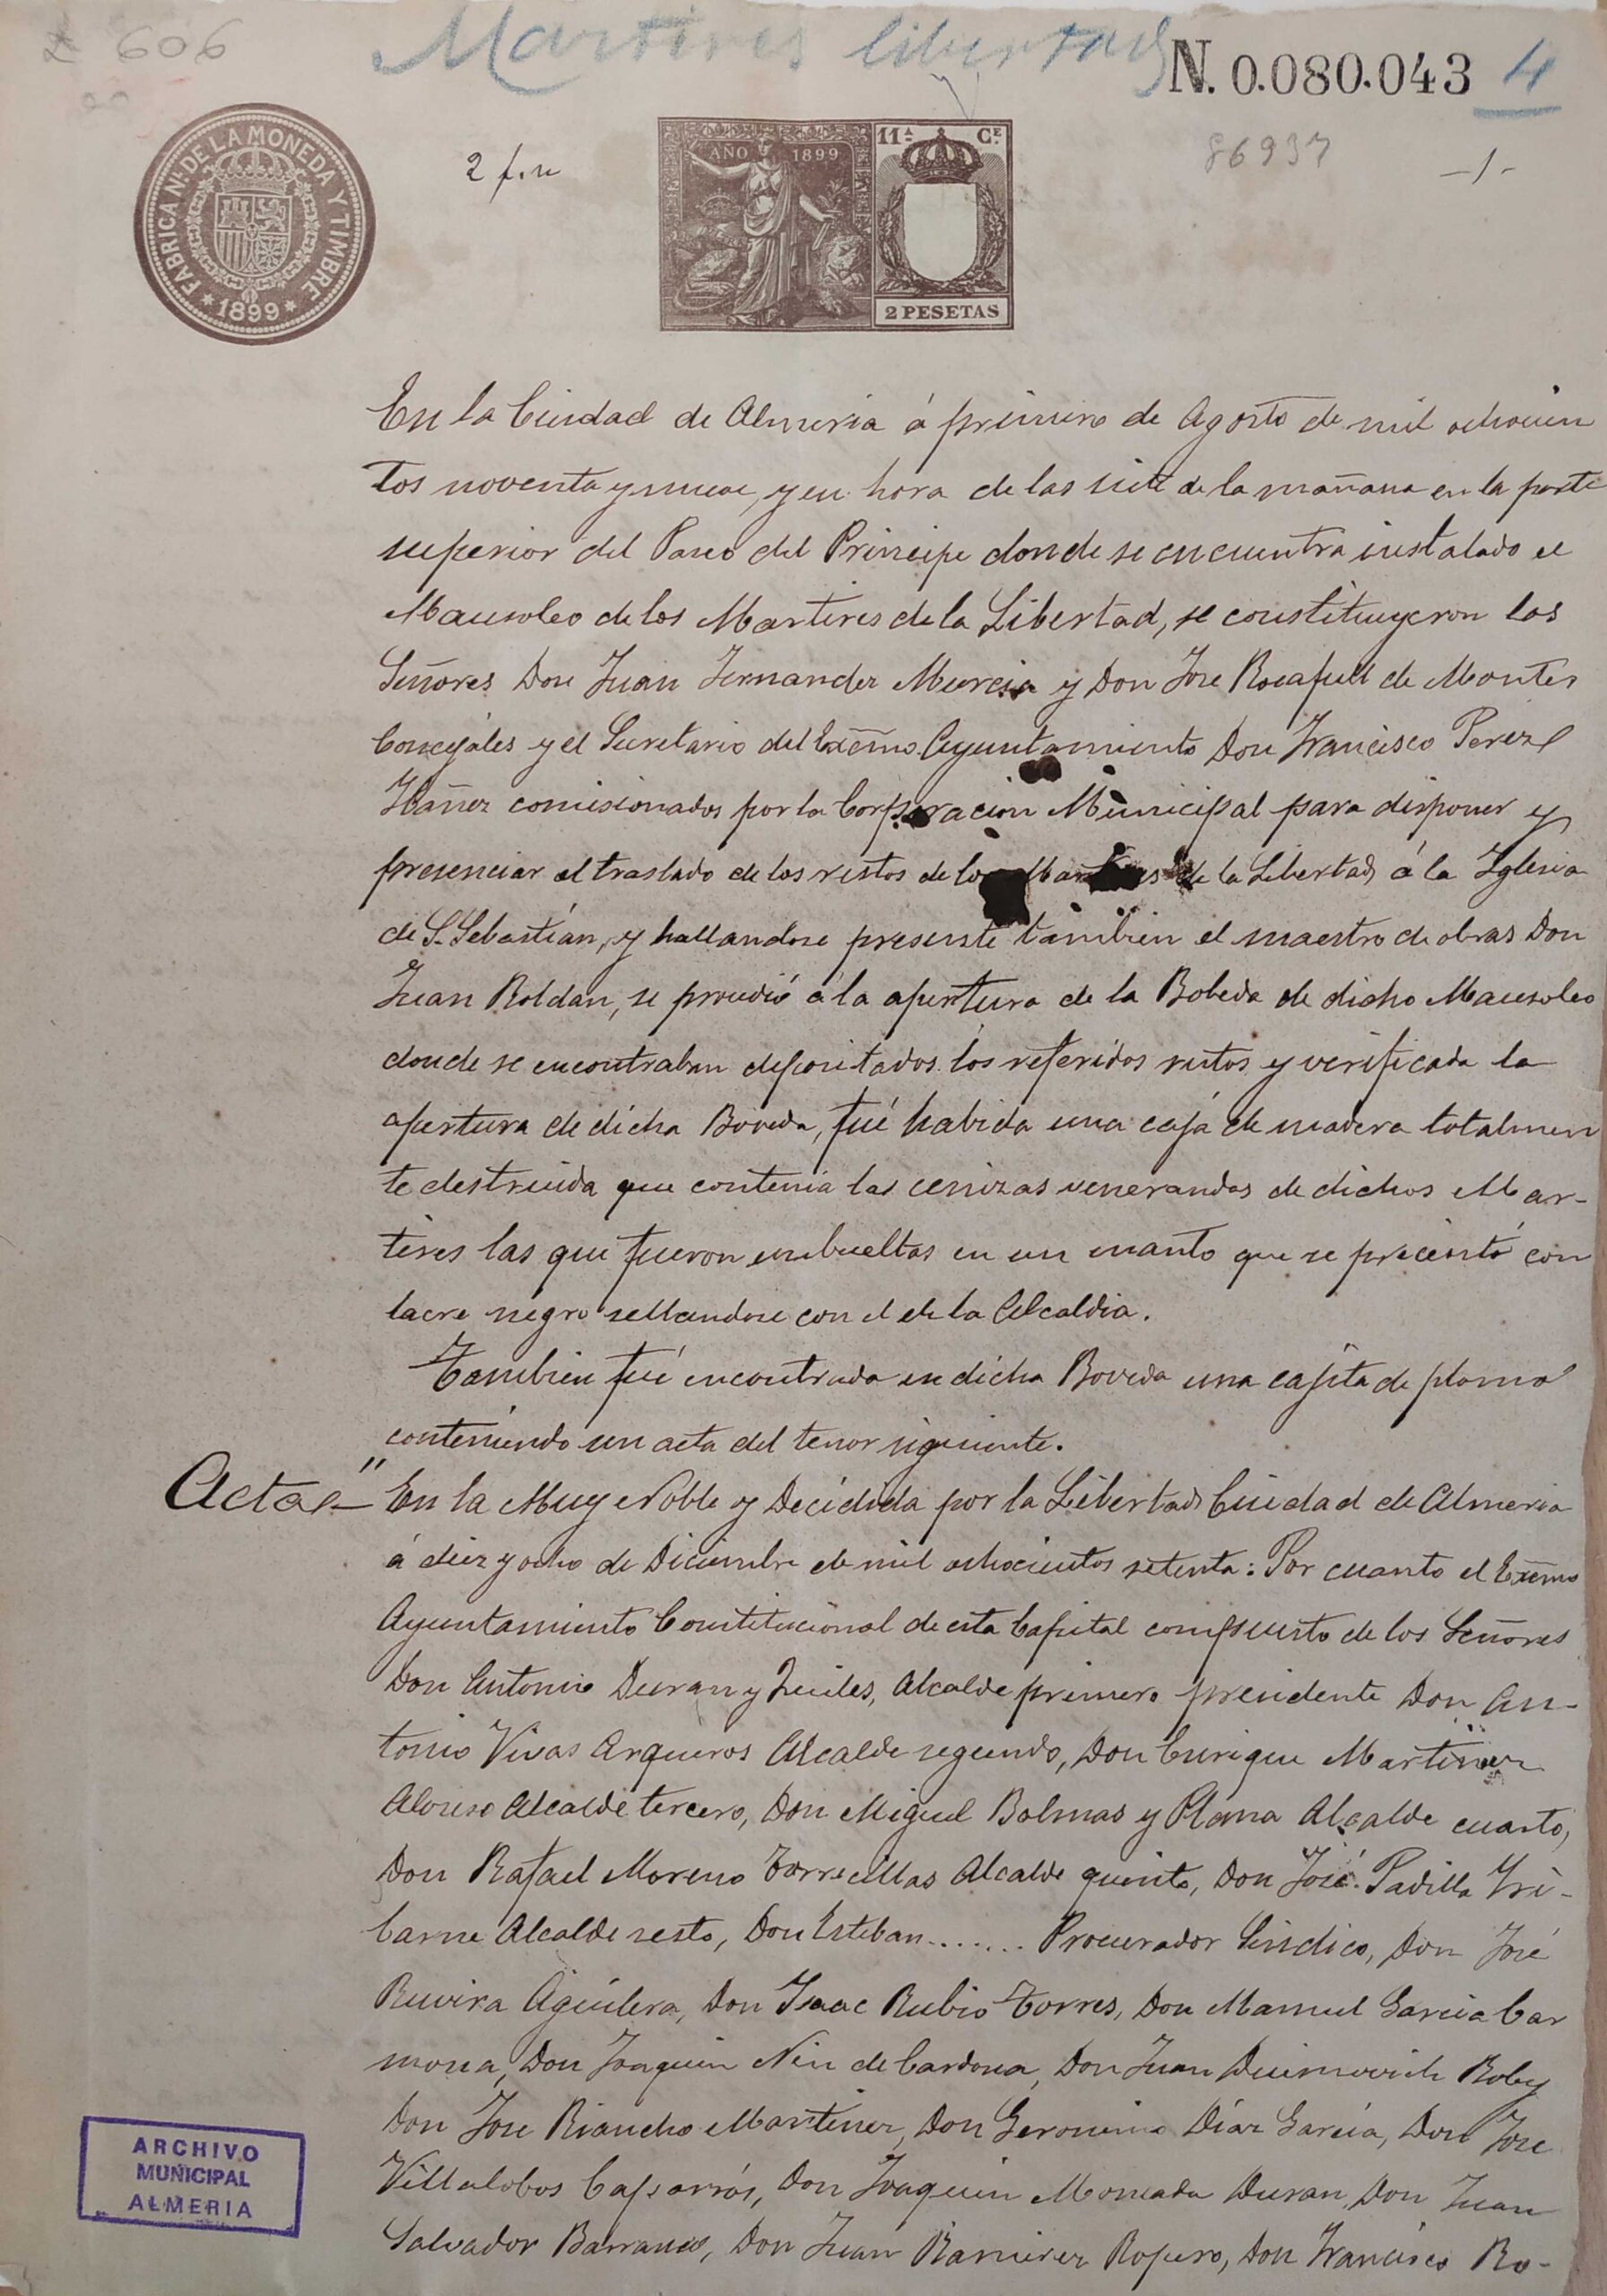 606
Martires libertad
N. 0.080.043
4
86937
-1-
FABRICA NL. DE LA MONEDA Y TIMBRE
* 1899 *
2 f. u
AÑO 1899
11ª CE.
2 PESETAS
En la Ciudad de Almeria á primero de Agosto de mil ochocien
tos noventa y nueve, y en hora de las siete de la mañana en la parte
superior del Paseo del Principe donde se encuentra instalado el
Mausoleo de los Martires de la Libertad, se constituyeron los
Señores Don Juan Fernandez Murcia y Don Jose Rocafull de Montes
Concejales y el Secretario del Excmo. Ayuntamiento Don Francisco Perez
Ibañez comisionados por la Corporacion Municipal para disponer y
presenciar el traslado de los restos de los Martires de la Libertad á la Iglesia
de S. Sebastián, y hallandose presente tambien el maestro de obras Don
Juan Roldan, se procedió á la apertura de la Bobeda de dicho Mausoleo
donde se encontraban depositados los referidos restos y verificada la
apertura de dicha Boveda, fué habida una caja de madera totalmen
te destruida que contenia las cenizas venerandas de dichos Mar-
tires las que fueron embueltas en un manto que se precintó con
lacre negro sellandose con el de la Alcaldia.
Tambien fué encontrada en dicha Boveda una cajita de plomo
conteniendo un acta del tenor siguiente.
Acta " En la Muy Noble y Decidida por la Libertad Ciudad de Almeria
á diez y ocho de Diciembre de mil ochocientos setenta: Por cuanto el Excmo
Ayuntamiento Constitucional de esta Capital compuesto de los Señores
Don Antonio Duran y Quiles, Alcalde primero presidente Don An-
tonio Vivas Arqueros Alcalde segundo, Don Enrique Martinez
Alonso Alcalde tercero, Don Miguel Bolmas y Plana Alcalde cuarto,
Don Rafael Moreno Torrecillas Alcalde quinto, Don José Padilla Yri-
barne Alcalde sesto, Don Esteban....... Procurador Sindico, Don José
Ruvira Aguilera, Don Isaac Rubio Torres, Don Manuel Garcia Car
mona, Don Joaquin Nin de Cardona, Don Juan Duimovich Roby
Don Jose Riancho Martinez, Don Geronimo Diaz Garcia, Don Jose
Villalobos Caparrós, Don Joaquin Moncada Duran, Don Juan
Salvador Barranco, Don Juan Ramirez Ropero, Don Francisco Ro-
ARCHIVO
MUNICIPAL
ALMERIA